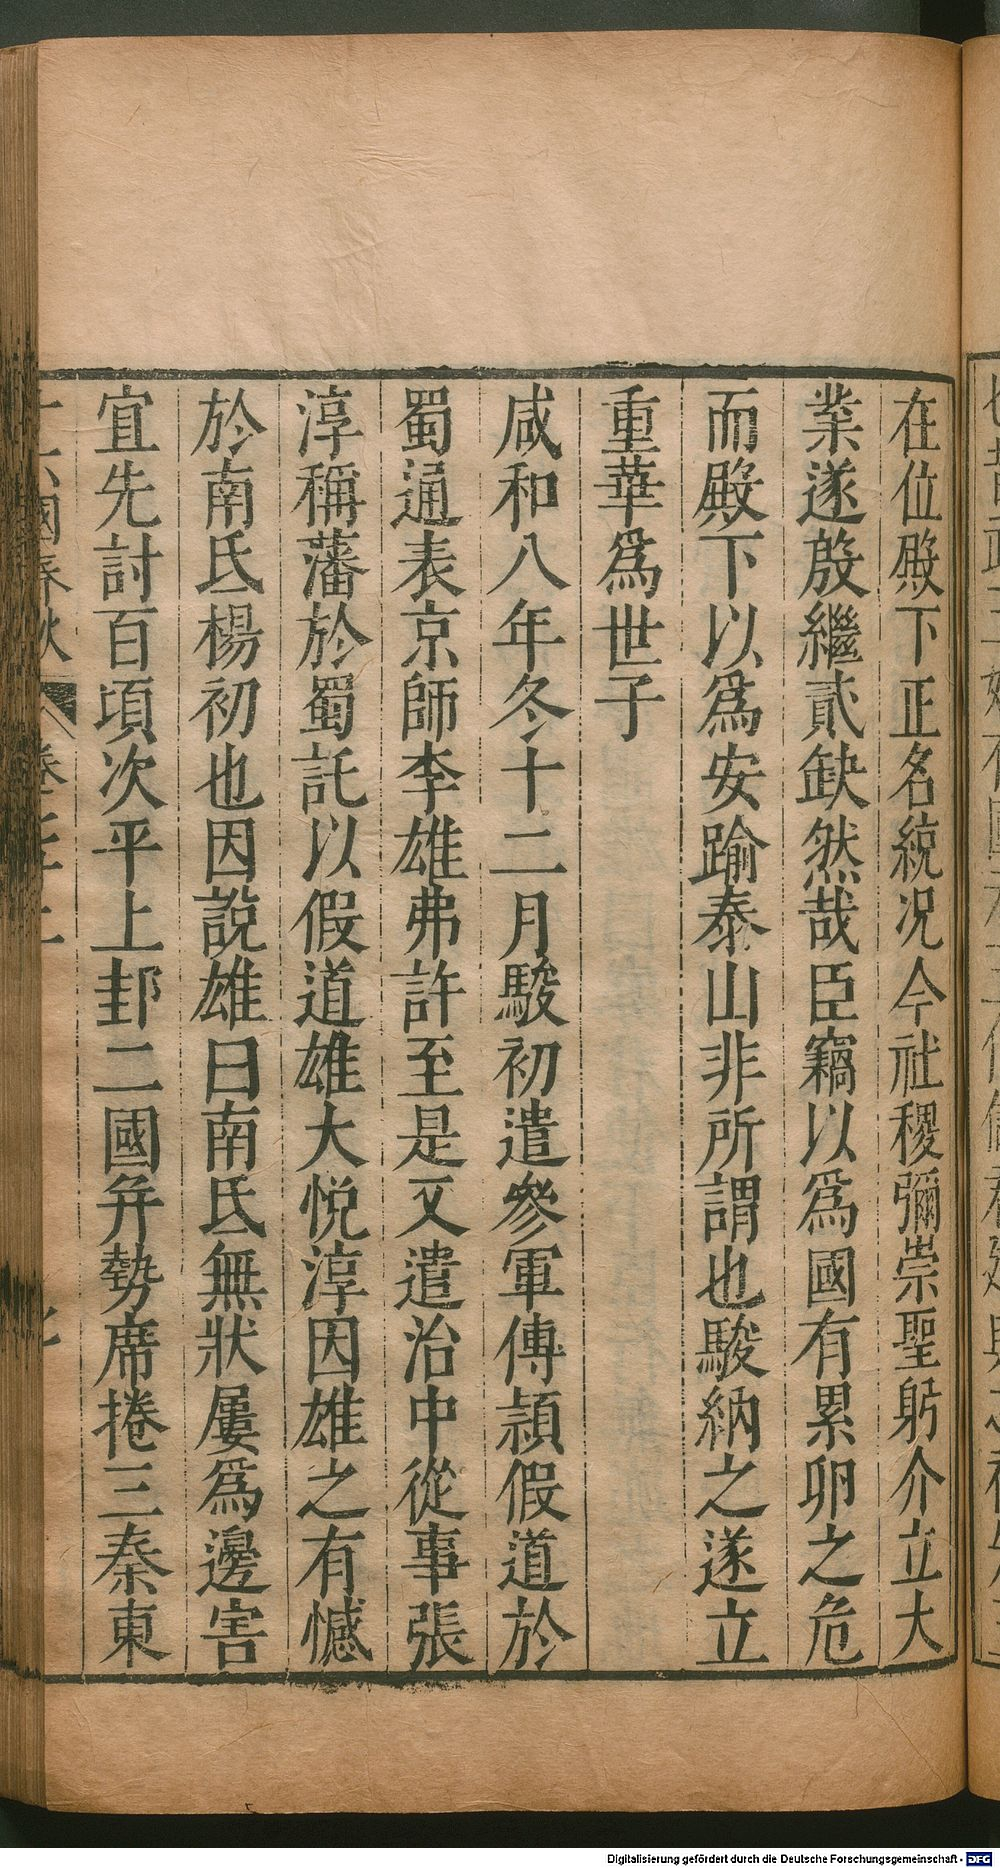 在位殿下正名統况今社稷彌崇聖躬介立大
業遂殷繼貳缺然哉臣竊以爲國有累卵之危
而殿下以爲安踰泰山非所謂也駿納之遂立
重華爲世子
咸和八年冬十二月駿初遣參軍傅頴假道於
蜀通表京師李雄弗許至是又遣治中從事張
淳稱藩於蜀託以假道雄大悅淳因雄之有憾
於南氐楊初也因說雄曰南氐無狀屢爲邊害
宜先討百頃次平上邽二國并勢席捲三秦東
國春秋
Digitalisierung gefördert durch die Deutsche Forschungsgemeinschaft - DFG